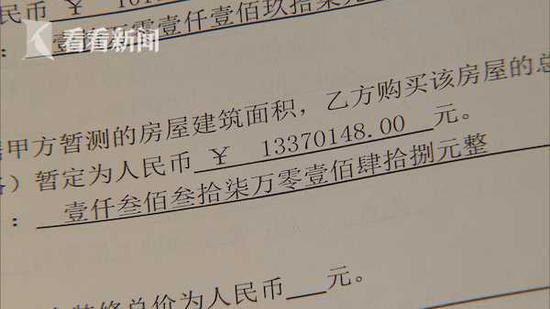 民币 ￥ 1011
零壹仟壹佰玖拾柒元
：
看看新闻
甲方暂测的房屋建筑面积，乙方购买该房屋的总
）暂定为人民币 ￥ 13370148.00 元。
： 壹仟叁佰叁拾柒万零壹佰肆拾捌元整
总价为人民币 元。